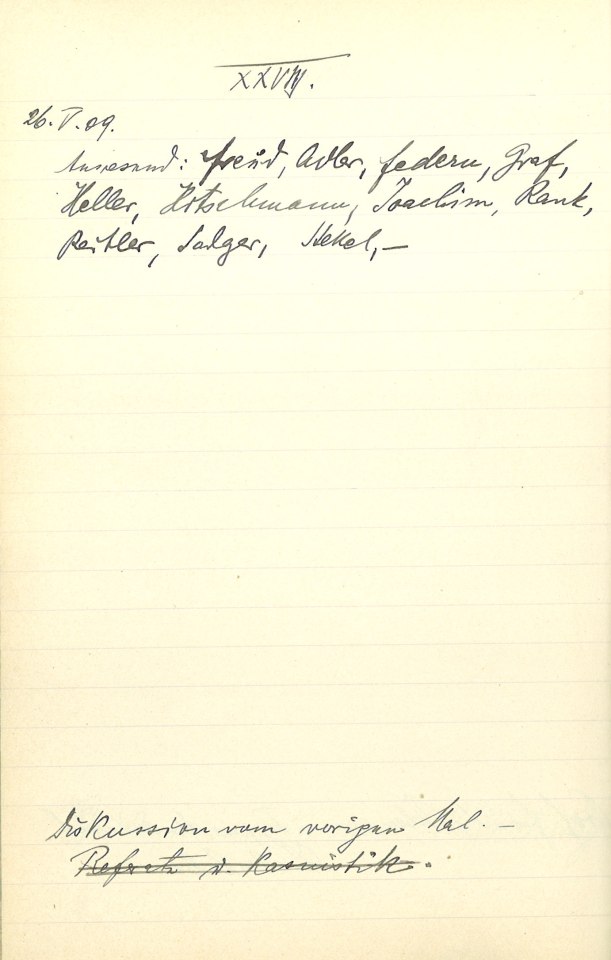 XXVIII.
26. V. 09.
Anwesend: Freud, Adler, Federn, Graf,
Heller, Hitschmann, Joachim, Rank,
Reitler, Sadger, Stekel, —
Diskussion vom vorigen Mal. —
Referate u. Kasuistik.